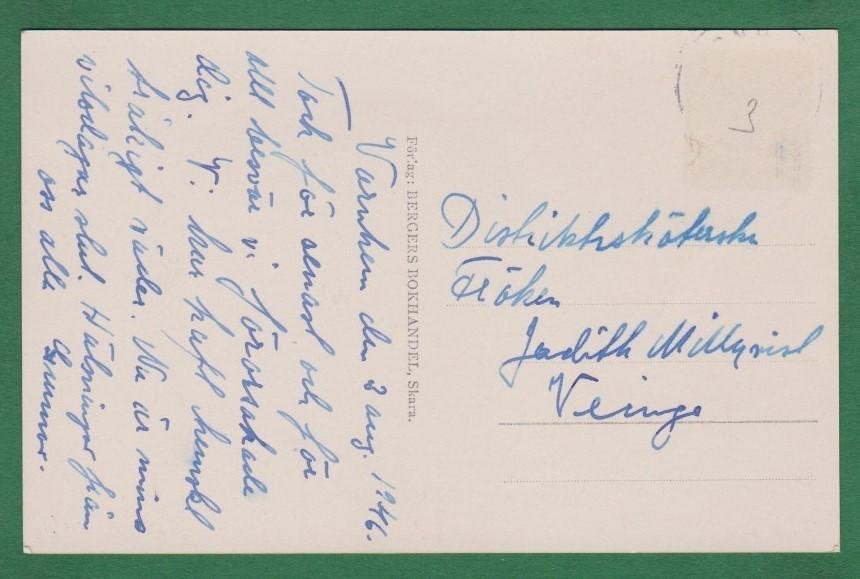 Varnhem den 3 aug. 1946.
Tack för senast och för
allt besvär vi förorsakade
dig. Vi har haft hemskt
tråkigt väder. Nu är mina
vilodagar slut. Hälsningar från
oss alla Gunnar.
Förlag: BERGERS BOKHANDEL, Skara.
3
Distriktssköterskan
Fröken
Judith Millqvist
Veinge